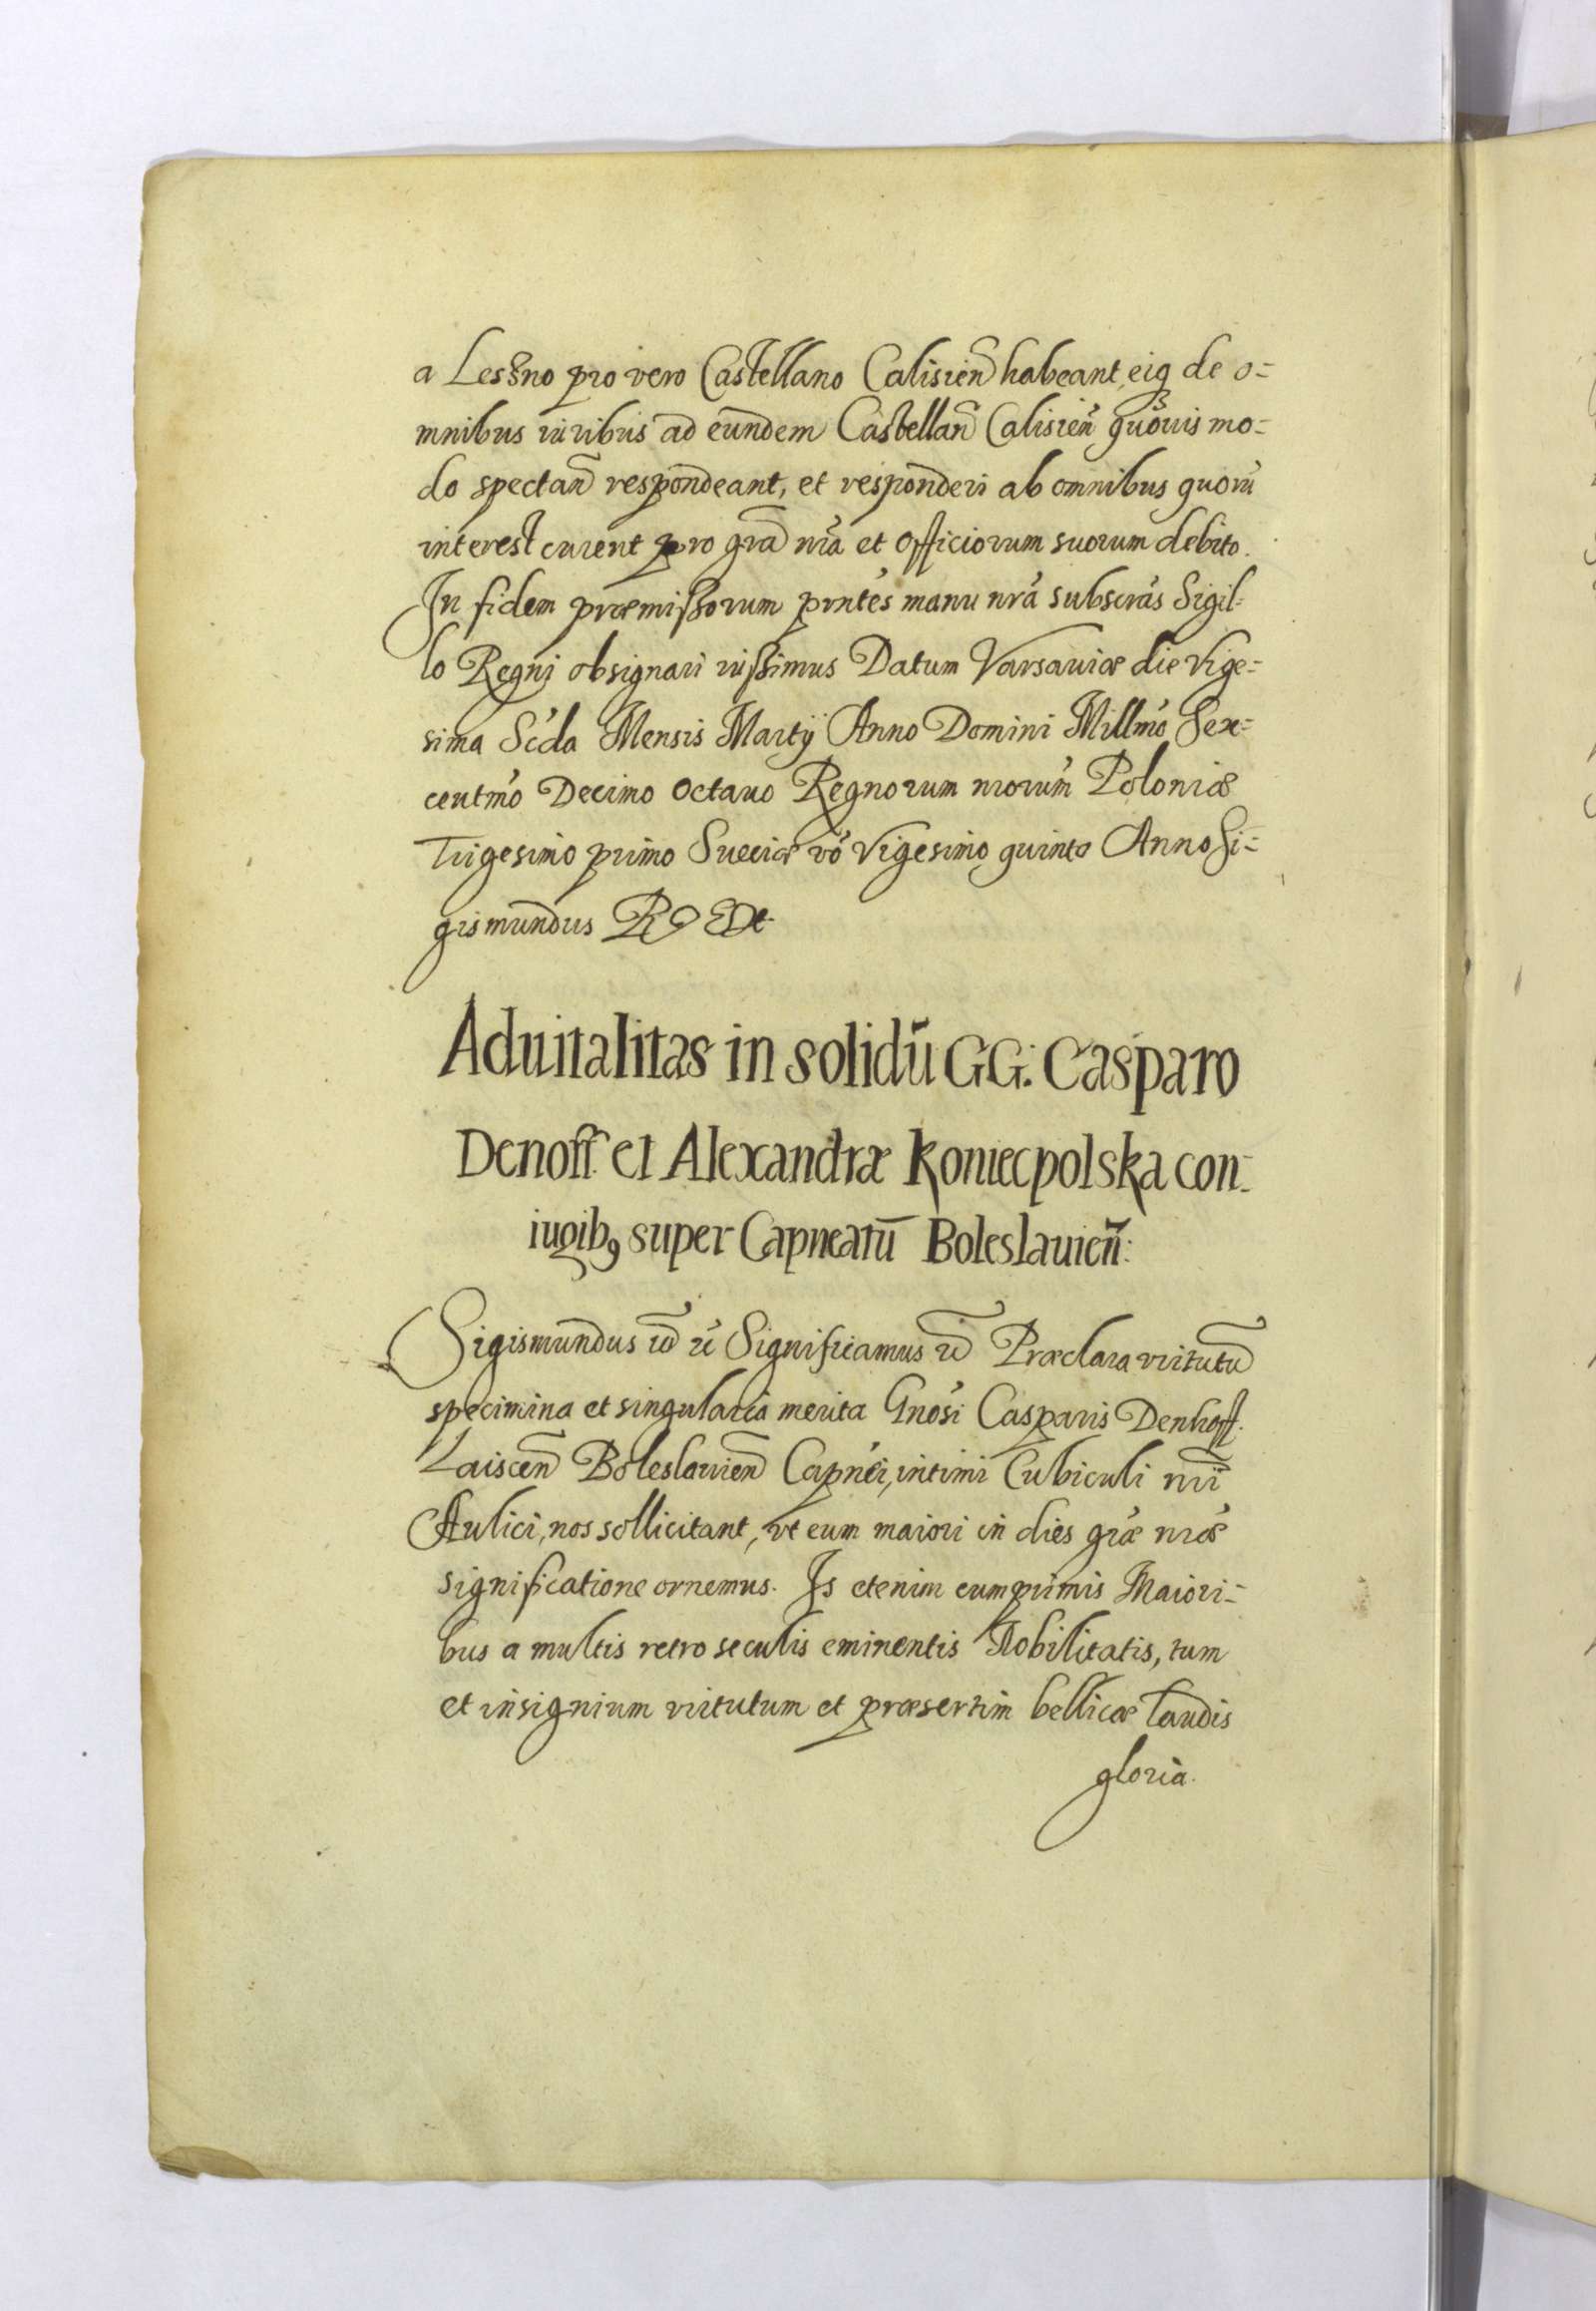 a Leszno pro vero Castellano Calisieñ habeant, eiq̃ de o=
mnibus iuribus ad eundem Castellañ Calisieñ quouis mo=
do spectañ respondeant, et responderi ab omnibus quorũ
interest curent pro gr̃a nr̃a et Officiorum suorum debito.
In fidem præmißorum pñtes manu nr̃a subscr̃as Sigil=
lo Regni obsignari iußimus Datum Varsauiæ die Vige=
sima Scd̃a Mensis Martÿ Anno Domini Millm̃o Sex=
centm̃o Decimo Octauo Regnorum nr̃orum Poloniæ
Trigesimo primo Sueciæ võ Vigesimo quinto Anno Si=
gismundus R
Aduitalitas in solidũ GG: Casparo
Denoff et Alexandræ Koniecpolska con=
iugibꝫ super Capneatũ Boleslauieñ:
Sigismundus Significamus Præclara virtutũ
specimina et singularia merita Gnõsi Casparis Denhoff.
Laisceñ Boleslauieñ Capñei, intimi Cubiculi nr̃i
Aulici, nos sollicitant, vt eum maiori in dies gr̃æ nr̃æ
significatione ornemus. Is etenim cum primis Maiori=
bus a multis retro seculis eminentis Nobilitatis, tum
et insignium virtutum et præsertim bellicæ laudis
gloria.